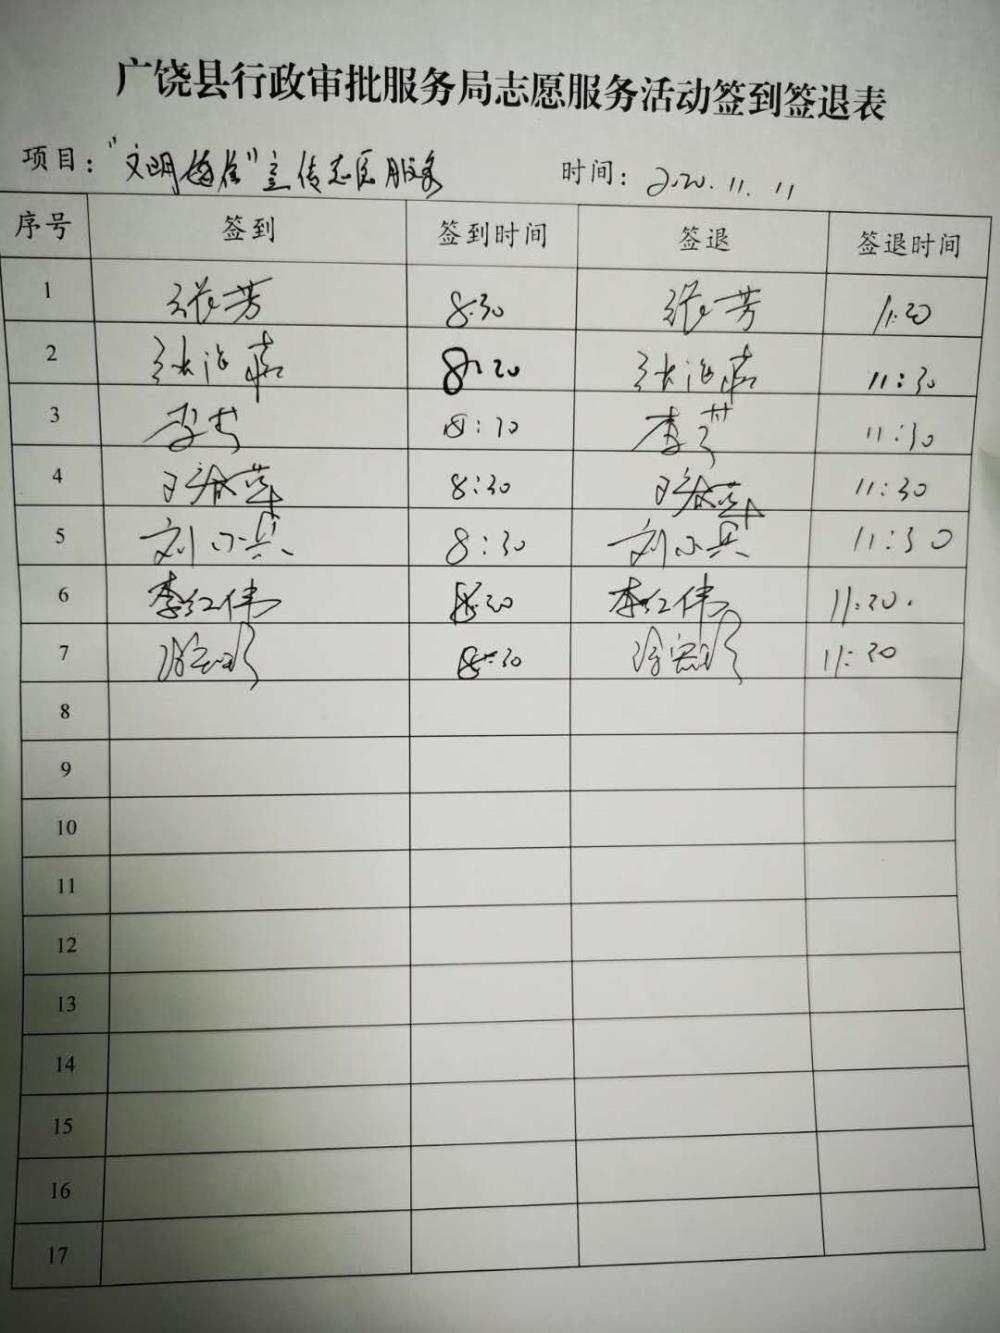 广饶县行政审批服务局志愿服务活动签到签退表
项目：“文明餐桌”宣传志愿服务 时间：2020.11.11
序号 签到 签到时间 签退 签退时间
1 张芳 8:30 张芳 11:30
2 8:30 11:30
3 李芳 8:30 李芳 11:30
4 8:30 11:30
5 刘小兵 8:30 刘小兵 11:30
6 李红伟 8:30 李红伟 11:30.
7 8:30 11:30
8
9
10
11
12
13
14
15
16
17